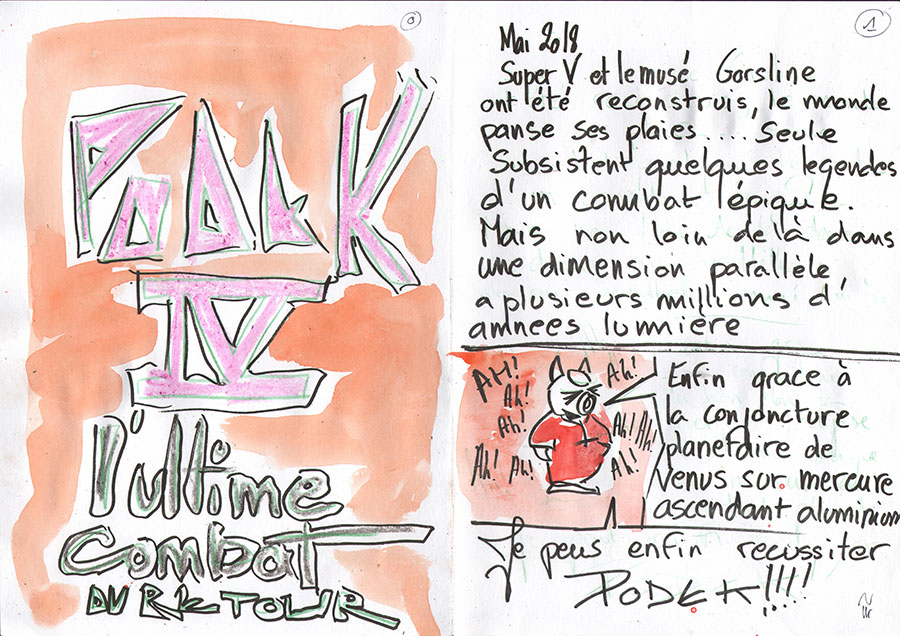 0
PODEK
IV
l'ultime
combat
DU RETOUR
1
Mai 2018
Super V et le musé Gorsline
ont été reconstruis, le monde
panse ses plaies.... Seule
Subsistent quelques legendes
d'un combat l'épique.
Mais non loin de là dans
une dimension parallèle
a plusieurs millions d'
années lumière
AH!
Ah!
Ah!
Ah!
Ah!
Ah!
Ah! Ah!
Ah!
Enfin grace à
la conjoncture
planetaire de
Venus sur mercure
ascendant aluminium
Je peus enfin recussiter
PODEK!!!!